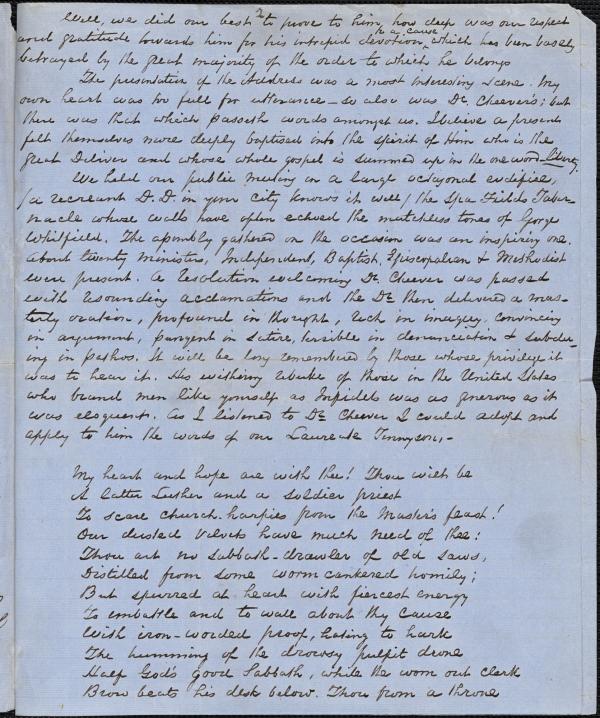 Well, we did our best to prove to him, how deep was our respect
and gratitude towards him for his intrepid devotion to a cause which has been basely
betrayed by the great majority of the order to which he belongs
The presentation of the Address was a most interesting scene. My
own heart was too full for utterance - so also was Dr. Cheever's; but
there was that which passeth words amongst us. I believe all present
felt themselves more deeply baptised into the spirit of Him who is the
great Deliver and whose whole gospel is summed up in the one word - liberty.
We held our public meeting in a large octagonal edifice,
(a recreant D.D. in your city knows it well) the Spa Fields Taber-
nacle whose walls have often echoed the matchless tones of George
Whitfield. The assembly gathered on the occasion was an inspiring one.
About twenty ministers, Independent, Baptist, Episcopalian & Methodist
were present. A resolution welcoming Dr. Cheever was passed
with resounding acclamations and the Dr. then delivered a mas-
terly oration, profound in thought, rich in imagery, convincing
in argument, pungent in satire, terrible in denunciation & subdu-
ing in pathos. It will be long remembered by those whose privilege it
was to hear it. His withering rebuke of those in the United States
who brand men like yourself as Infidels was as generous as it
was eloquent. As I listened to Dr. Cheever I could adopt and
apply to him the words of our Laureate Tennyson, -
My heart and hope are with thee! Thou wilt be
A latter Luther and a soldier priest
To scare church-harpies from the Master's feast!
Our dusted velvets have much need of thee:
Thou art no sabbath-drawler of old saws,
Distilled from some worm cankered homily;
But spurred at heart with fiercest energy
To embattle and to wall about thy cause
With iron-worded proof, hating to hark
The humming of the drowsy pulpit drone
Half God's good Sabbath, while the worn out clerk
Brow beats his desk below. Thou from a throne